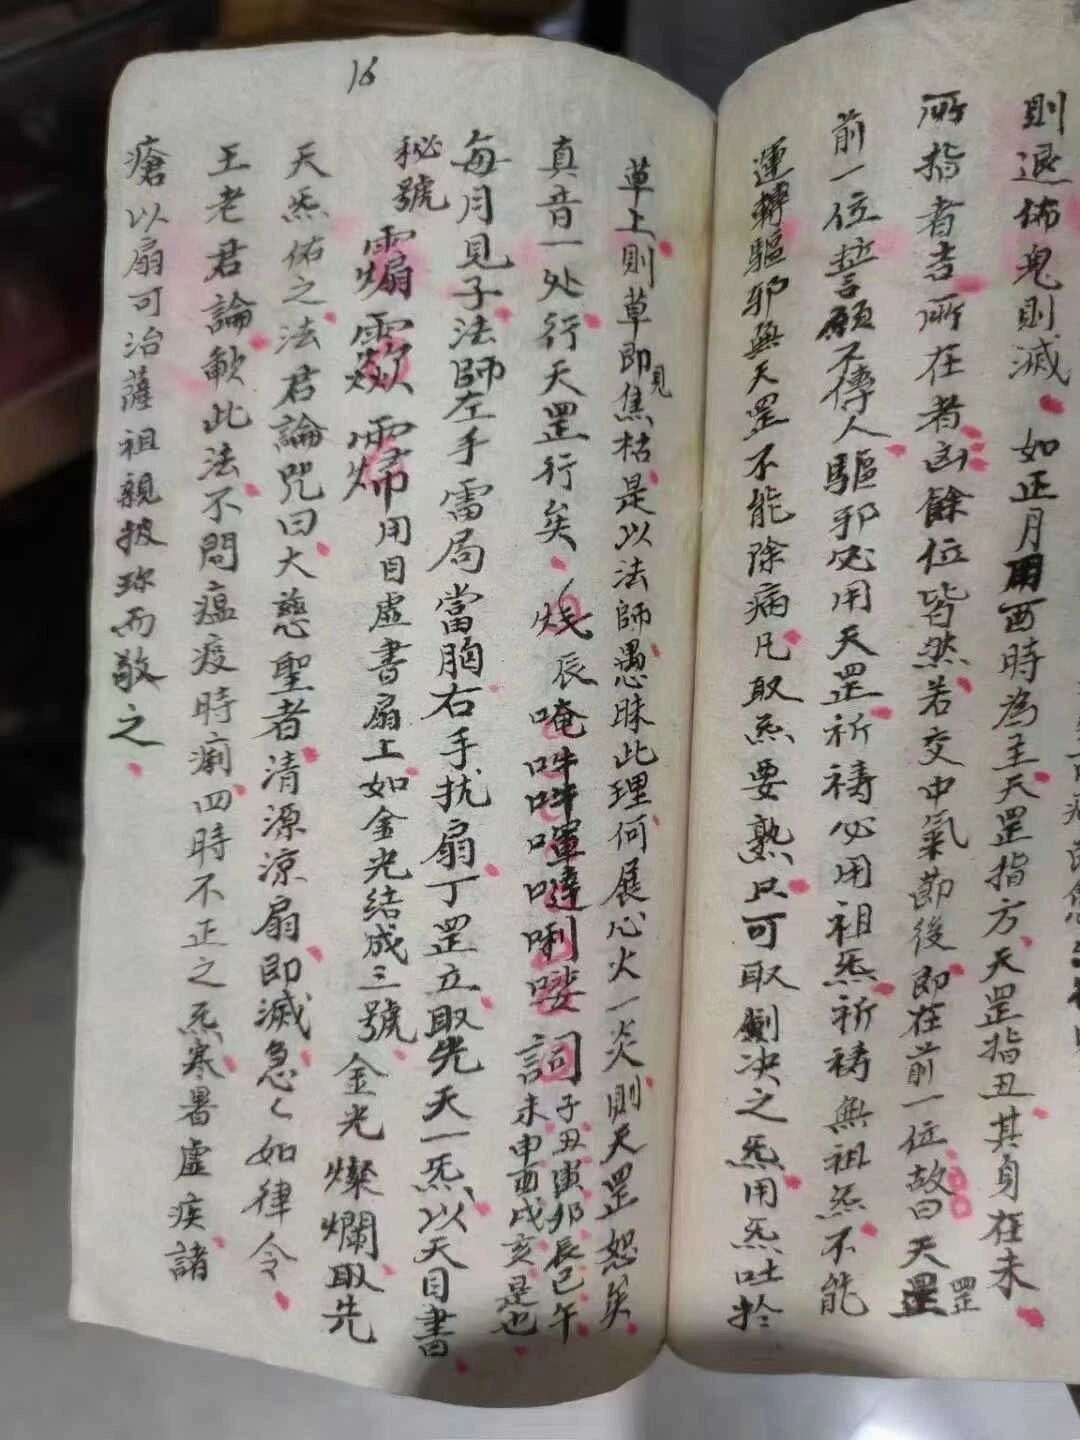 則退佈鬼則滅如正月用酉時為主天罡指方天罡指丑其身在未
所指者吉所在者凶餘位皆然若交中氣節後即在前一位故曰天罡
罡
前一位誓願不傳人驅邪必用天罡祈禱必用祖炁祈禱無祖炁不能
運轉驅邪無天罡不能除病凡取炁要熟只可取劍决之炁用炁吐於
草上則草即焦枯是以法師愚昧此理何展心火一炎則天罡恕矣
見
真音一处行天罡行矣
辰唵吽吽囉噠唎㖿詞子丑寅卯辰巳午
未申酉戌亥是也
每月見子法師左手雷局當胸右手扰扇丁罡立取先天一炁以天目書
秘號
用目虛書扇上如金光結成三號金光燦爛取先
天炁佑之法君論咒曰大慈聖者清源凉扇即滅急々如律令
王老君論軟此法不問瘟疫時痢四時不正之炁寒暑虛疾諸
瘡以扇可治薩祖親披珎而敬之
16